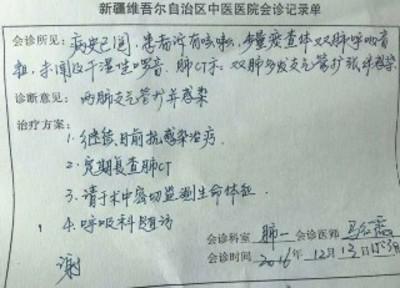 新疆维吾尔自治区中医医院会诊记录单
会诊所见：病史已阅，患者诉有咳嗽，少量痰查体双肺呼吸音
粗，未闻及干湿性啰音。肺CT示：双肺多发支气管扩张并感染
诊断意见：两肺支气管扩并感染
治疗方案：
1.继续目前抗感染治疗
2.定期复查肺CT
3.请于术中密切监测生命体征
4.呼吸科随访
会诊科室 肺一 会诊医师
谢 会诊时间 2016年12月13日